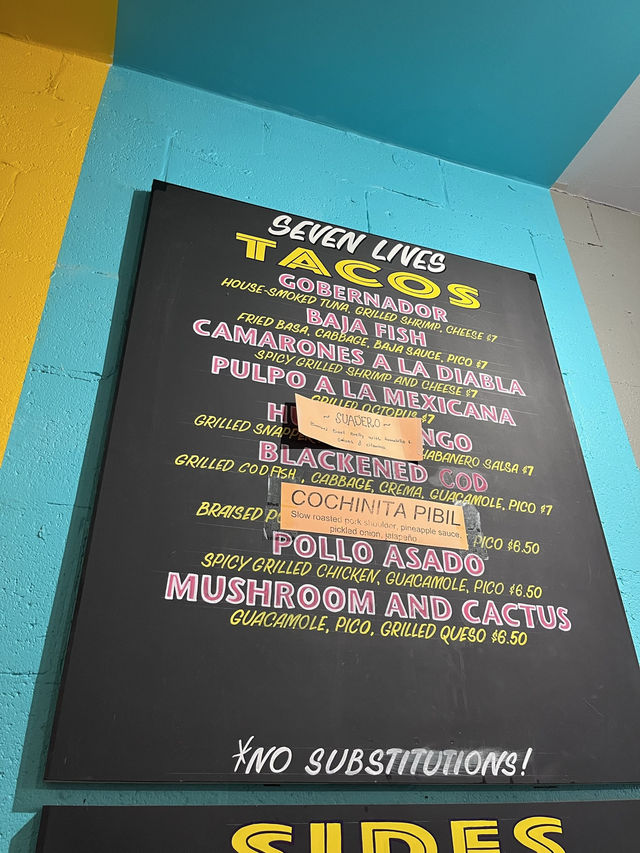 SEVEN LIVES
TACOS
GOBERNADOR
HOUSE-SMOKED TUNA, GRILLED SHRIMP, CHEESE $7
BAJA FISH
FRIED BASA, CABBAGE, BAJA SAUCE, PICO $7
CAMARONES A LA DIABLA
SPICY GRILLED SHRIMP AND CHEESE $7
PULPO A LA MEXICANA
GRILLED OCTOPUS $7
~ SUADERO ~
Beef Belly with
GRILLED HABANERO SALSA $7
BLACKENED COD
GRILLED CODFISH, CABBAGE, CREMA, GUACAMOLE, PICO $7
COCHINITA PIBIL
Slow roasted pork shoulder, pineapple sauce,
pickled onion, jalapeño
BRAISED PICO $6.50
POLLO ASADO
SPICY GRILLED CHICKEN, GUACAMOLE, PICO $6.50
MUSHROOM AND CACTUS
GUACAMOLE, PICO, GRILLED QUESO $6.50
*NO SUBSTITUTIONS!
SIDES